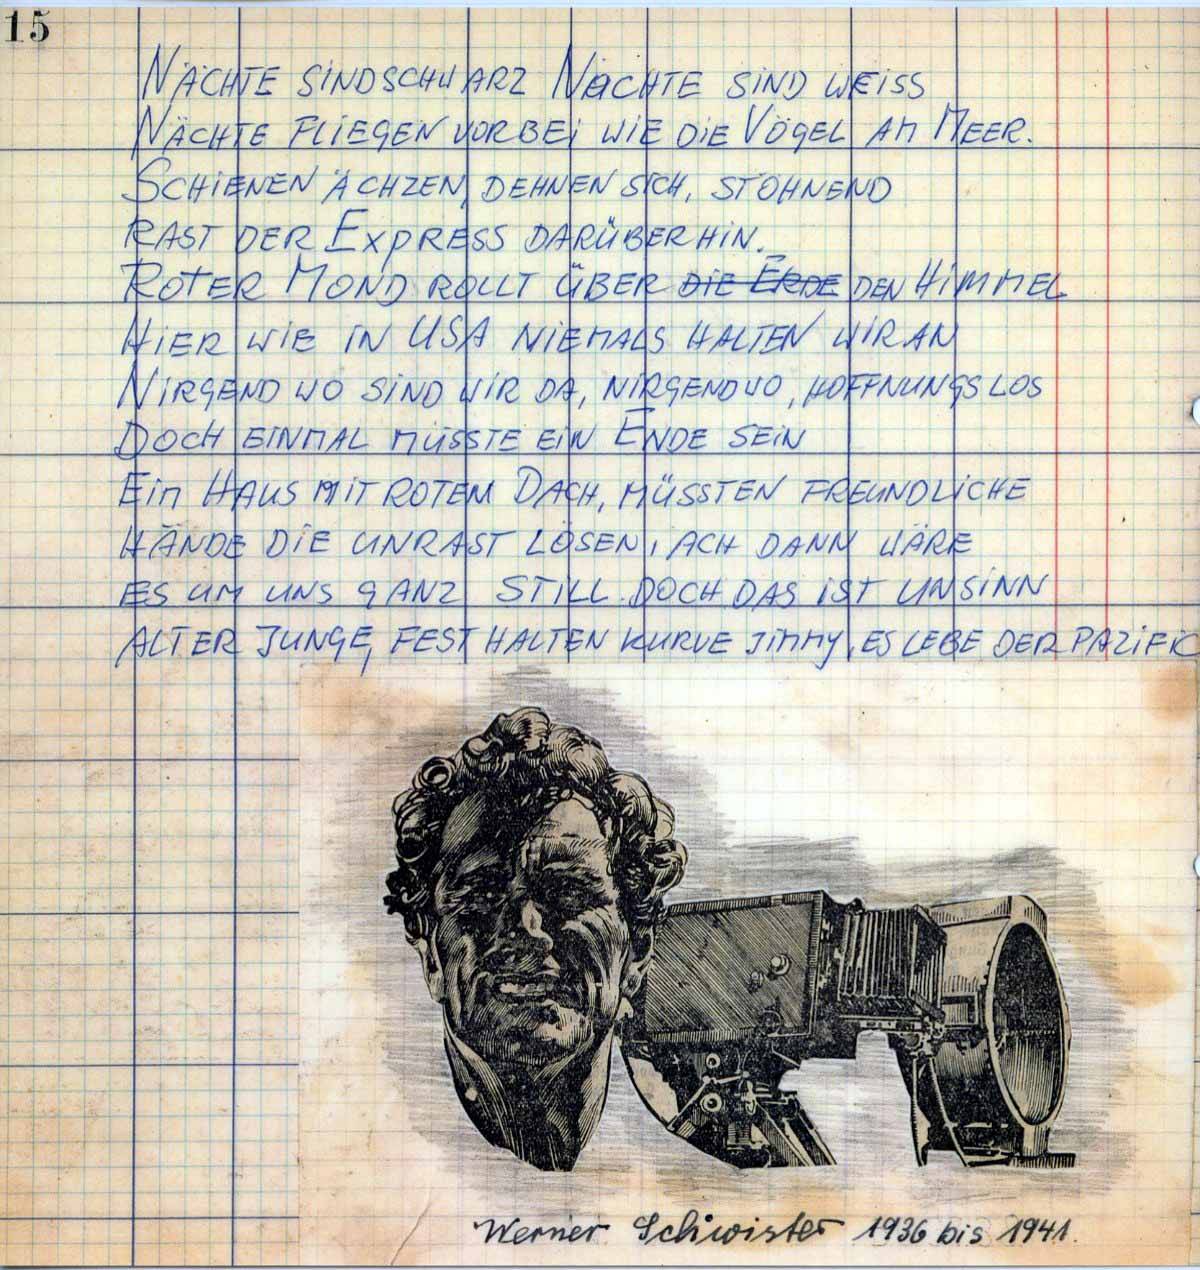 15
NÄCHTE SIND SCHWARZ NÄCHTE SIND WEISS
NÄCHTE FLIEGEN VORBEI WIE DIE VÖGEL AM MEER.
SCHIENEN ÄCHZEN, DEHNEN SICH, STÖHNEND
RAST DER EXPRESS DARÜBERHIN.
ROTER MOND ROLLT ÜBER DIE ERDE DEN HIMMEL
HIER WIE IN USA NIEMALS HALTEN WIR AN
NIRGEND WO SIND WIR DA, NIRGENDWO, HOFFNUNGSLOS
DOCH EINMAL MÜSSTE EIN ENDE SEIN
EIN HAUS MIT ROTEM DACH, MÜSSTEN FREUNDLICHE
HÄNDE DIE UNRAST LÖSEN, ACH DANN WÄRE
ES UM UNS GANZ STILL. DOCH DAS IST UNSINN
ALTER JUNGE, FEST HALTEN KURVE JIMMY, ES LEBE DER PAZIFIC
Werner Schwister 1936 bis 1941.